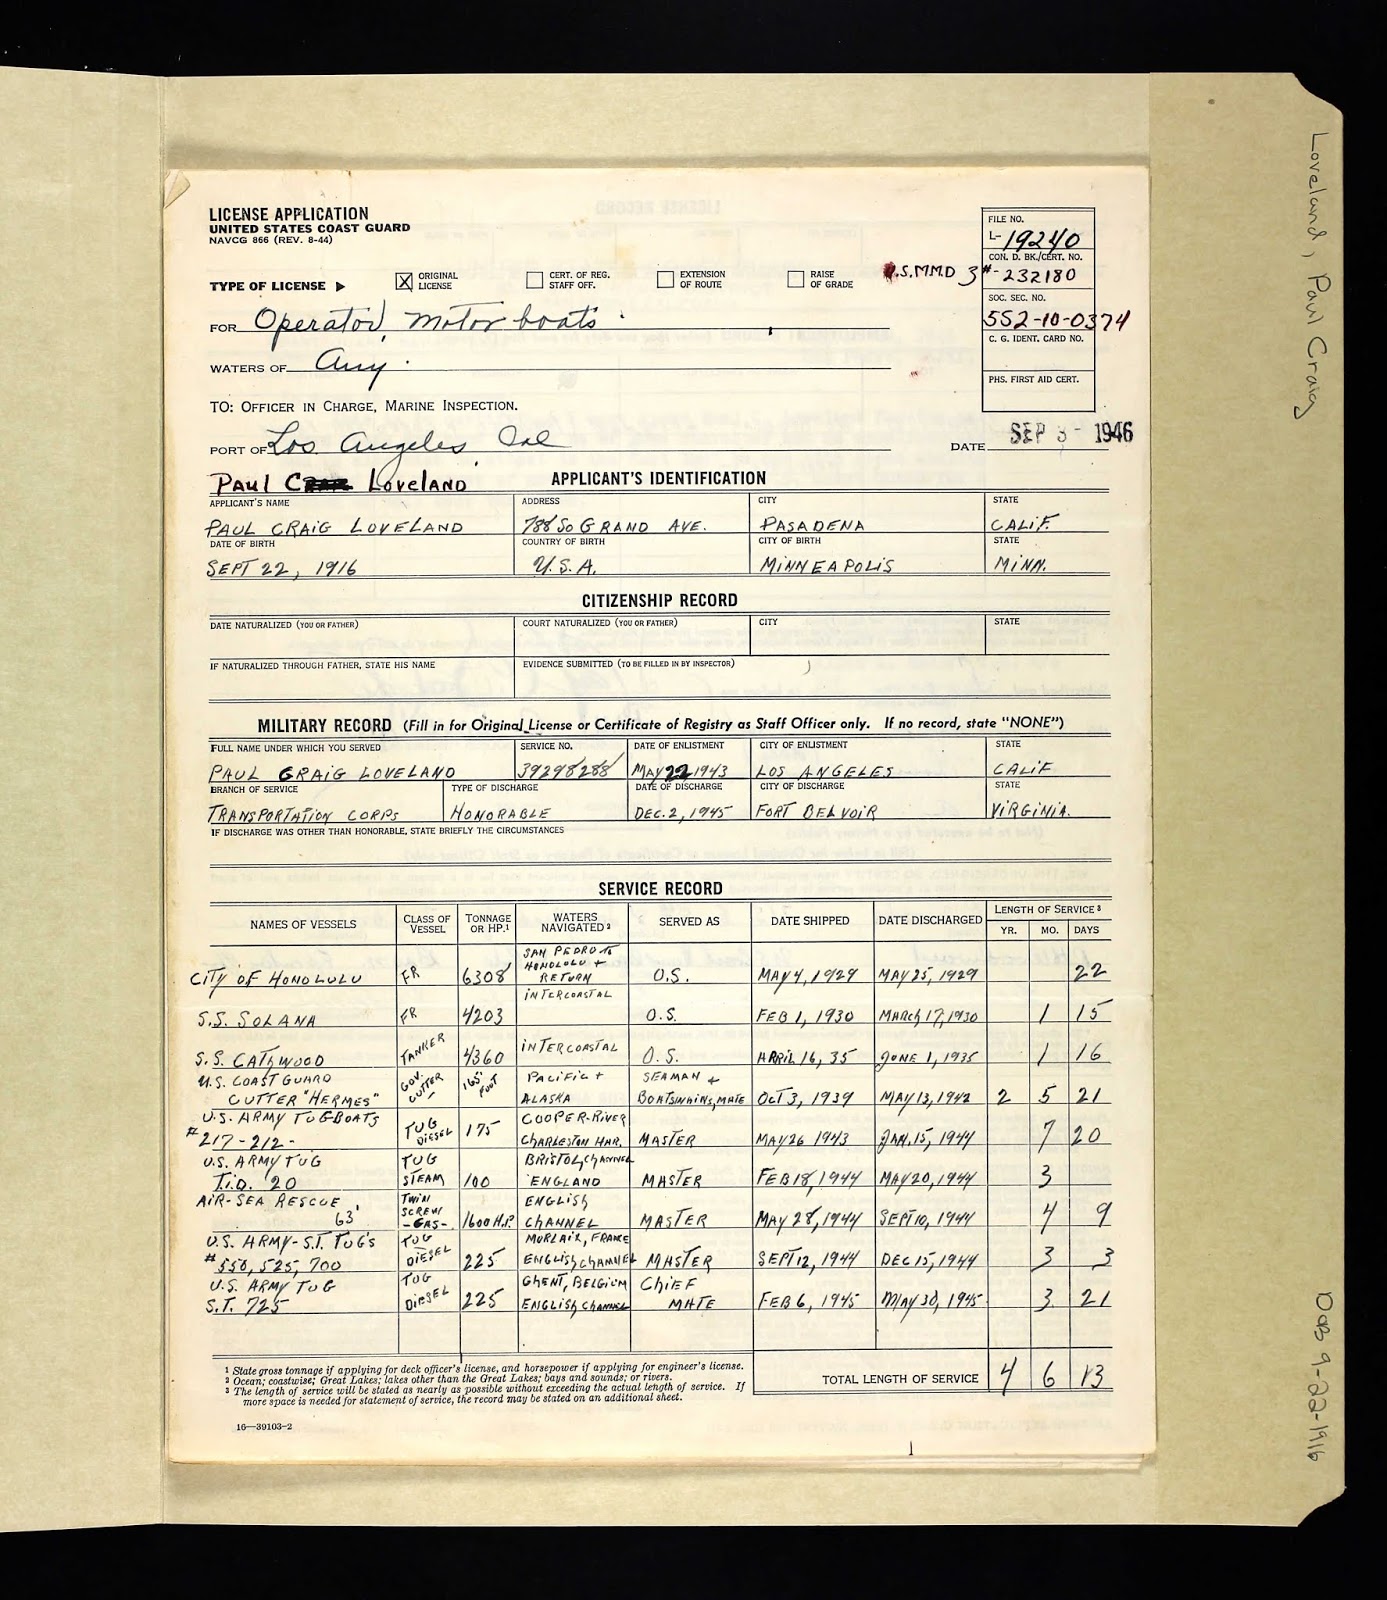 LICENSE APPLICATION
UNITED STATES COAST GUARD
NAVCG 866 (REV. 8-44)
TYPE OF LICENSE ▶ ☒ ORIGINAL LICENSE ☐ CERT. OF REG. STAFF OFF. ☐ EXTENSION OF ROUTE ☐ RAISE OF GRADE
FOR Operator, Motor boats.
WATERS OF Any.
TO: OFFICER IN CHARGE, MARINE INSPECTION.
PORT OF Los Angeles Cal
FILE NO.
L-19240
CON. D. BK./CERT. NO.
U.S.M.M.D 3#-232180
SOC. SEC. NO.
552-10-0374
C. G. IDENT. CARD NO.
PHS. FIRST AID CERT.
DATE SEP 3 - 1946
PAUL LOVELAND APPLICANT'S IDENTIFICATION
APPLICANT'S NAME ADDRESS CITY STATE
PAUL CRAIG LOVELAND 788 SO GRAND AVE. PASADENA CALIF.
DATE OF BIRTH COUNTRY OF BIRTH CITY OF BIRTH STATE
SEPT 22, 1916 U.S.A. MINNEAPOLIS MINN.
CITIZENSHIP RECORD
DATE NATURALIZED (YOU OR FATHER) COURT NATURALIZED (YOU OR FATHER) CITY STATE
IF NATURALIZED THROUGH FATHER, STATE HIS NAME EVIDENCE SUBMITTED (TO BE FILLED IN BY INSPECTOR)
MILITARY RECORD (Fill in for Original License or Certificate of Registry as Staff Officer only. If no record, state "NONE")
FULL NAME UNDER WHICH YOU SERVED SERVICE NO. DATE OF ENLISTMENT CITY OF ENLISTMENT STATE
PAUL CRAIG LOVELAND 39298288 MAY 22 1943 LOS ANGELES CALIF
BRANCH OF SERVICE TYPE OF DISCHARGE DATE OF DISCHARGE CITY OF DISCHARGE STATE
TRANSPORTATION CORPS HONORABLE DEC. 2, 1945 FORT BELVOIR VIRGINIA.
IF DISCHARGE WAS OTHER THAN HONORABLE, STATE BRIEFLY THE CIRCUMSTANCES
SERVICE RECORD
NAMES OF VESSELS CLASS OF VESSEL TONNAGE OR HP.¹ WATERS NAVIGATED² SERVED AS DATE SHIPPED DATE DISCHARGED LENGTH OF SERVICE³
YR. MO. DAYS
CITY OF HONOLULU FR 6308 SAN PEDRO TO HONOLULU + RETURN O.S. MAY 4, 1929 MAY 25, 1929 22
S.S. SOLANA FR 4203 INTERCOASTAL O.S. FEB 1, 1930 MARCH 17, 1930 1 15
S.S. CATHWOOD TANKER 4360 INTERCOASTAL O.S. APRIL 16, 35 JUNE 1, 1935 1 16
U.S. COAST GUARD CUTTER "HERMES" GOV. CUTTER 165' FOOT PACIFIC + ALASKA SEAMAN + BOATSWAINS, MATE OCT 3, 1939 MAY 13, 1942 2 5 21
U.S. ARMY TUGBOATS #217-212- TUG DIESEL 175 COOPER-RIVER CHARLESTON HAR. MASTER MAY 26 1943 JAN. 15, 1944 7 20
U.S. ARMY TUG T.I.D. 20 TUG STEAM 100 BRISTOL, CHANNEL ENGLAND MASTER FEB 18, 1944 MAY 20, 1944 3
AIR-SEA RESCUE 63' TWIN SCREW -GAS- 1600 H.P. ENGLISH CHANNEL MASTER MAY 28, 1944 SEPT 10, 1944 4 9
U.S. ARMY-S.T. TUG'S #550, 525, 700 TUG DIESEL 225 MORLAIX, FRANCE ENGLISH CHANNEL MASTER SEPT 12, 1944 DEC 15, 1944 3 3
U.S. ARMY TUG S.T. 725 TUG DIESEL 225 GHENT, BELGIUM ENGLISH CHANNEL CHIEF MATE FEB 6, 1945 MAY 30, 1945. 3 21
TOTAL LENGTH OF SERVICE 4 6 13
¹ State gross tonnage if applying for deck officer's license, and horsepower if applying for engineer's license.
² Ocean; coastwise; Great Lakes; lakes other than the Great Lakes; bays and sounds; or rivers.
³ The length of service will be stated as nearly as possible without exceeding the actual length of service. If
more space is needed for statement of service, the record may be stated on an additional sheet.
16—39103-2
Loveland, Paul Craig
DOB 9-22-1916